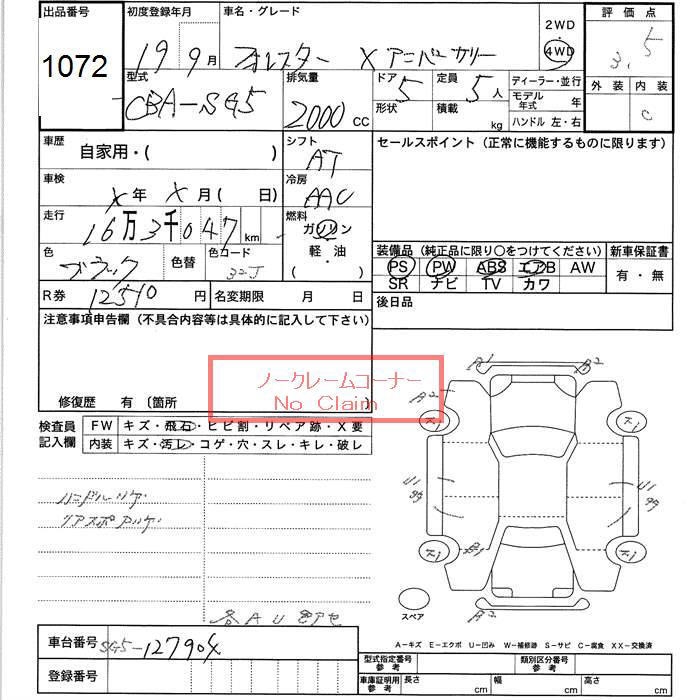 出品番号 初度登録年月 車名・グレード 2WD 評価点
1072 19 9月 フォレスター Xアニバーサリー 4WD 3.5
型式 排気量 ドア 定員 ディーラー・並行 外装 内装
CBA-SG5 2000 CC 5 5人 モデル年式 年 C
形状 積載 kg ハンドル 左・右
車歴 自家用・( ) シフト AT セールスポイント (正常に機能するものに限ります)
車検 X年 X月( 日) 冷房 AAC
走行 16万3千047km 燃料 ガソリン
色 ブラック 色替 色コード 32J 軽・油 ・( )
装備品 (純正品に限り○をつけてください) 新車保証書
PS PW ABS エアB AW 有・無
SR ナビ TV カワ
R券 12510円 名変期限 月 日 後日品
注意事項申告欄 (不具合内容等は具体的に記入して下さい)
ノークレームコーナー
No Claim
修復歴 有 〔箇所
検査員記入欄 FW キズ・飛石・ヒビ割・リペア跡・X要
内装 キズ・汚レ・コゲ・穴・スレ・キレ・破レ
ハンドルスレ
リアスポ
各AU
A1 B2
A2
スペア
A-キズ E-エクボ U-凹み W-補修跡 S-サビ C-腐食 XX-交換済
車台番号 SG5-127904
登録番号
型式指定番号 参考 類別区分番号 参考
車庫証明用 参考 長さ cm 幅 cm 高さ cm